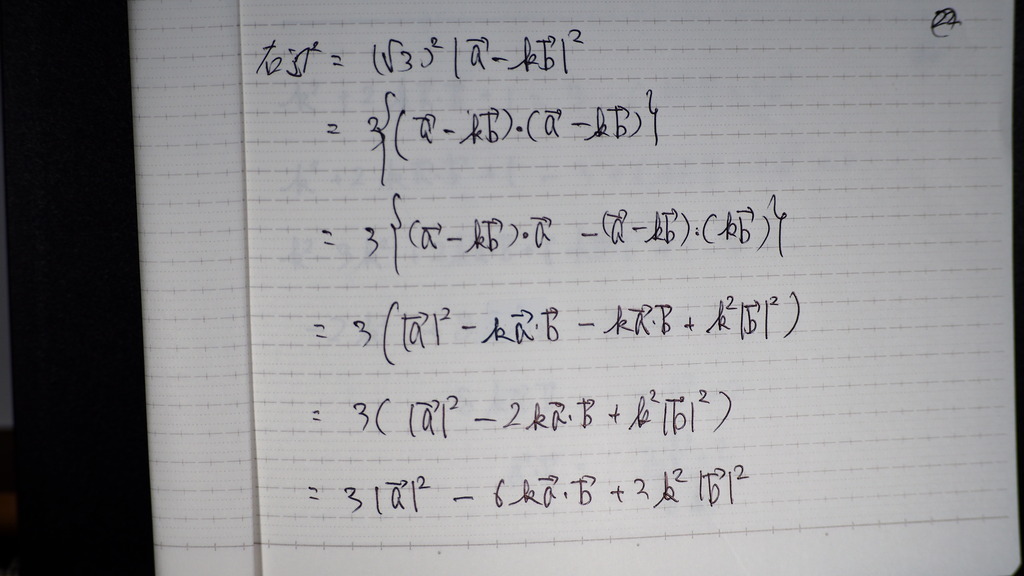 右辺² = (√3)² |a⃗ - kb⃗|²
= 3{(a⃗ - kb⃗)・(a⃗ - kb⃗)}
= 3{(a⃗ - kb⃗)・a⃗ - (a⃗ - kb⃗)・(kb⃗)}
= 3(|a⃗|² - ka⃗・b⃗ - ka⃗・b⃗ + k²|b⃗|²)
= 3(|a⃗|² - 2ka⃗・b⃗ + k²|b⃗|²)
= 3|a⃗|² - 6ka⃗・b⃗ + 3k²|b⃗|²